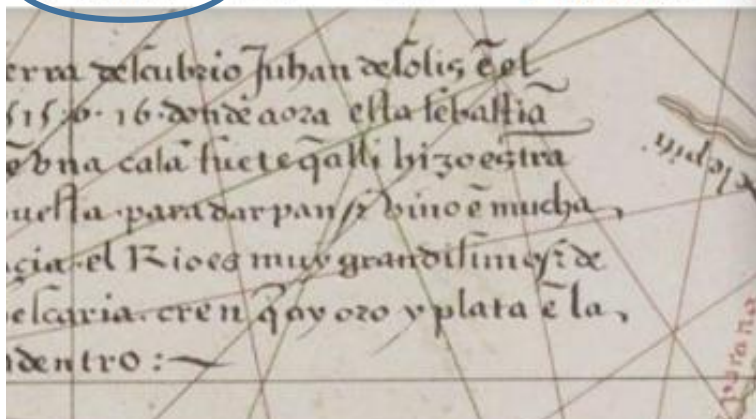 erra descubrio Juhan de solis ẽ el
515: o. 16. donde aora esta sebastiã
ẽ vna casa fuerte q̃ alli hizo
uesta. para dar pan y vino ẽ mucha
çia. el Rio es muy grandisimo y de
pescaria. cren q̃ ay oro y plata ẽ la
dentro: